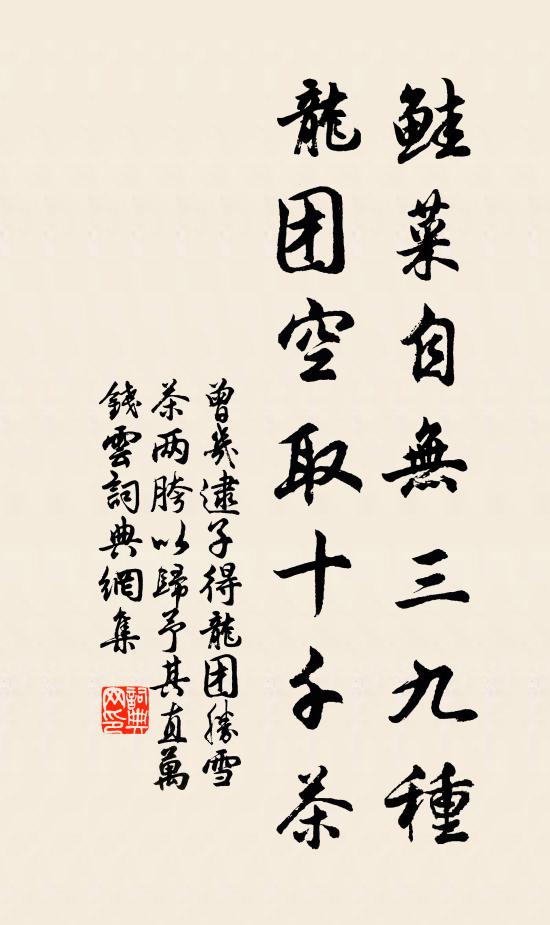 鮭菜自無三九種
龍团空取十千茶
曾幾逮子得龍团勝雪
茶两胯以歸予其直萬
錢雲詞典網集
詞典
网印